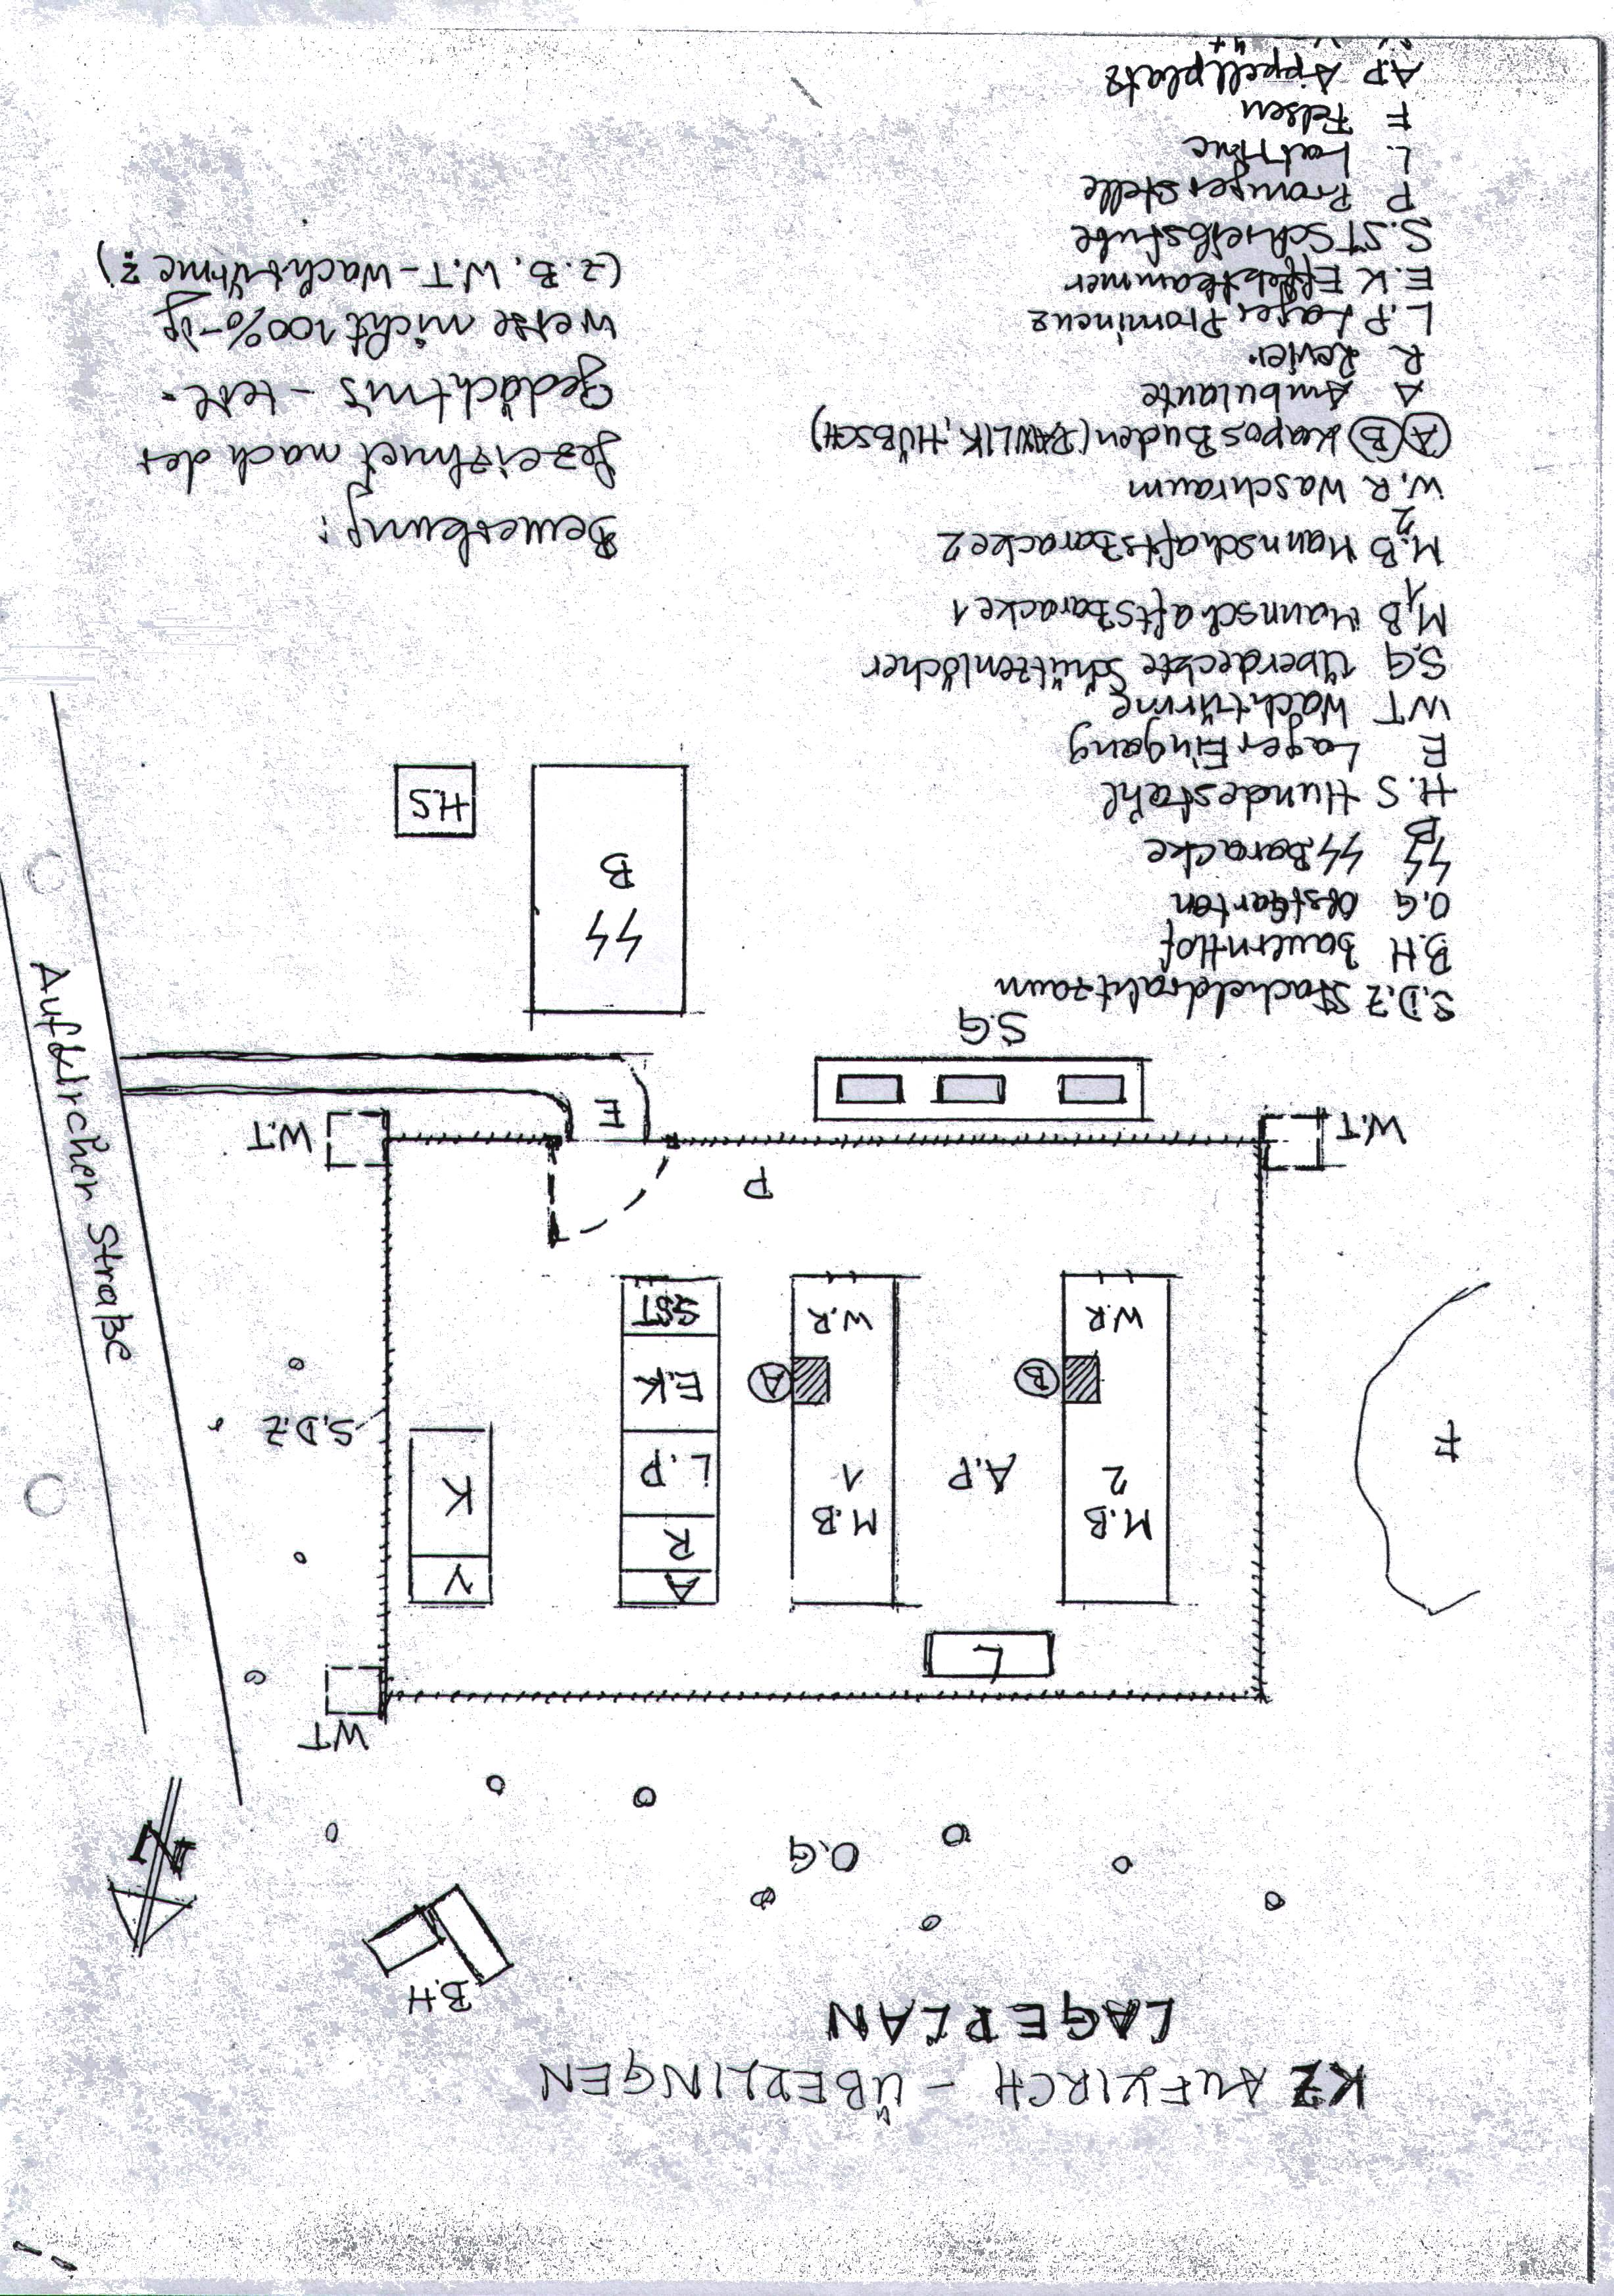 KZ AUFKIRCH - ÜBERLINGEN
LAGEPLAN
B.H
N
O.G
WT
L
M.B
2
A.P
M.B
1
A
R
L.P
E.K
S.ST
V
K
F
S.D.Z
B
A
W.R
W.R
P
W.T
E
W.T
Aufkircher Straße
S.G
SS
B
H.S
S.D.Z Stacheldrahtzaun
B.H BauernHof
O.G Obstgarten
SS B SS Baracke
H.S Hundestahl
E LagerEingang
WT Wachtürme
S.G überdeckte Schützenlöcher
M.B 1 MannschaftsBaracke 1
M.B 2 MannschaftsBaracke 2
W.R Waschraum
A B Kapos Buden (PAWLIK, HÜBSCH)
A Ambulante
R Revier
L.P Lager Prominenz
E.K Effektkammer
S.ST Schreibstube
P Prangerstelle
L. Latrine
F Felsen
A.P Appellplatz
Bemerkung:
gezeichnet nach der
Gedächtnis - teil-
weise nicht 100%-ig
(z.B. W.T - Wachtürme ?)